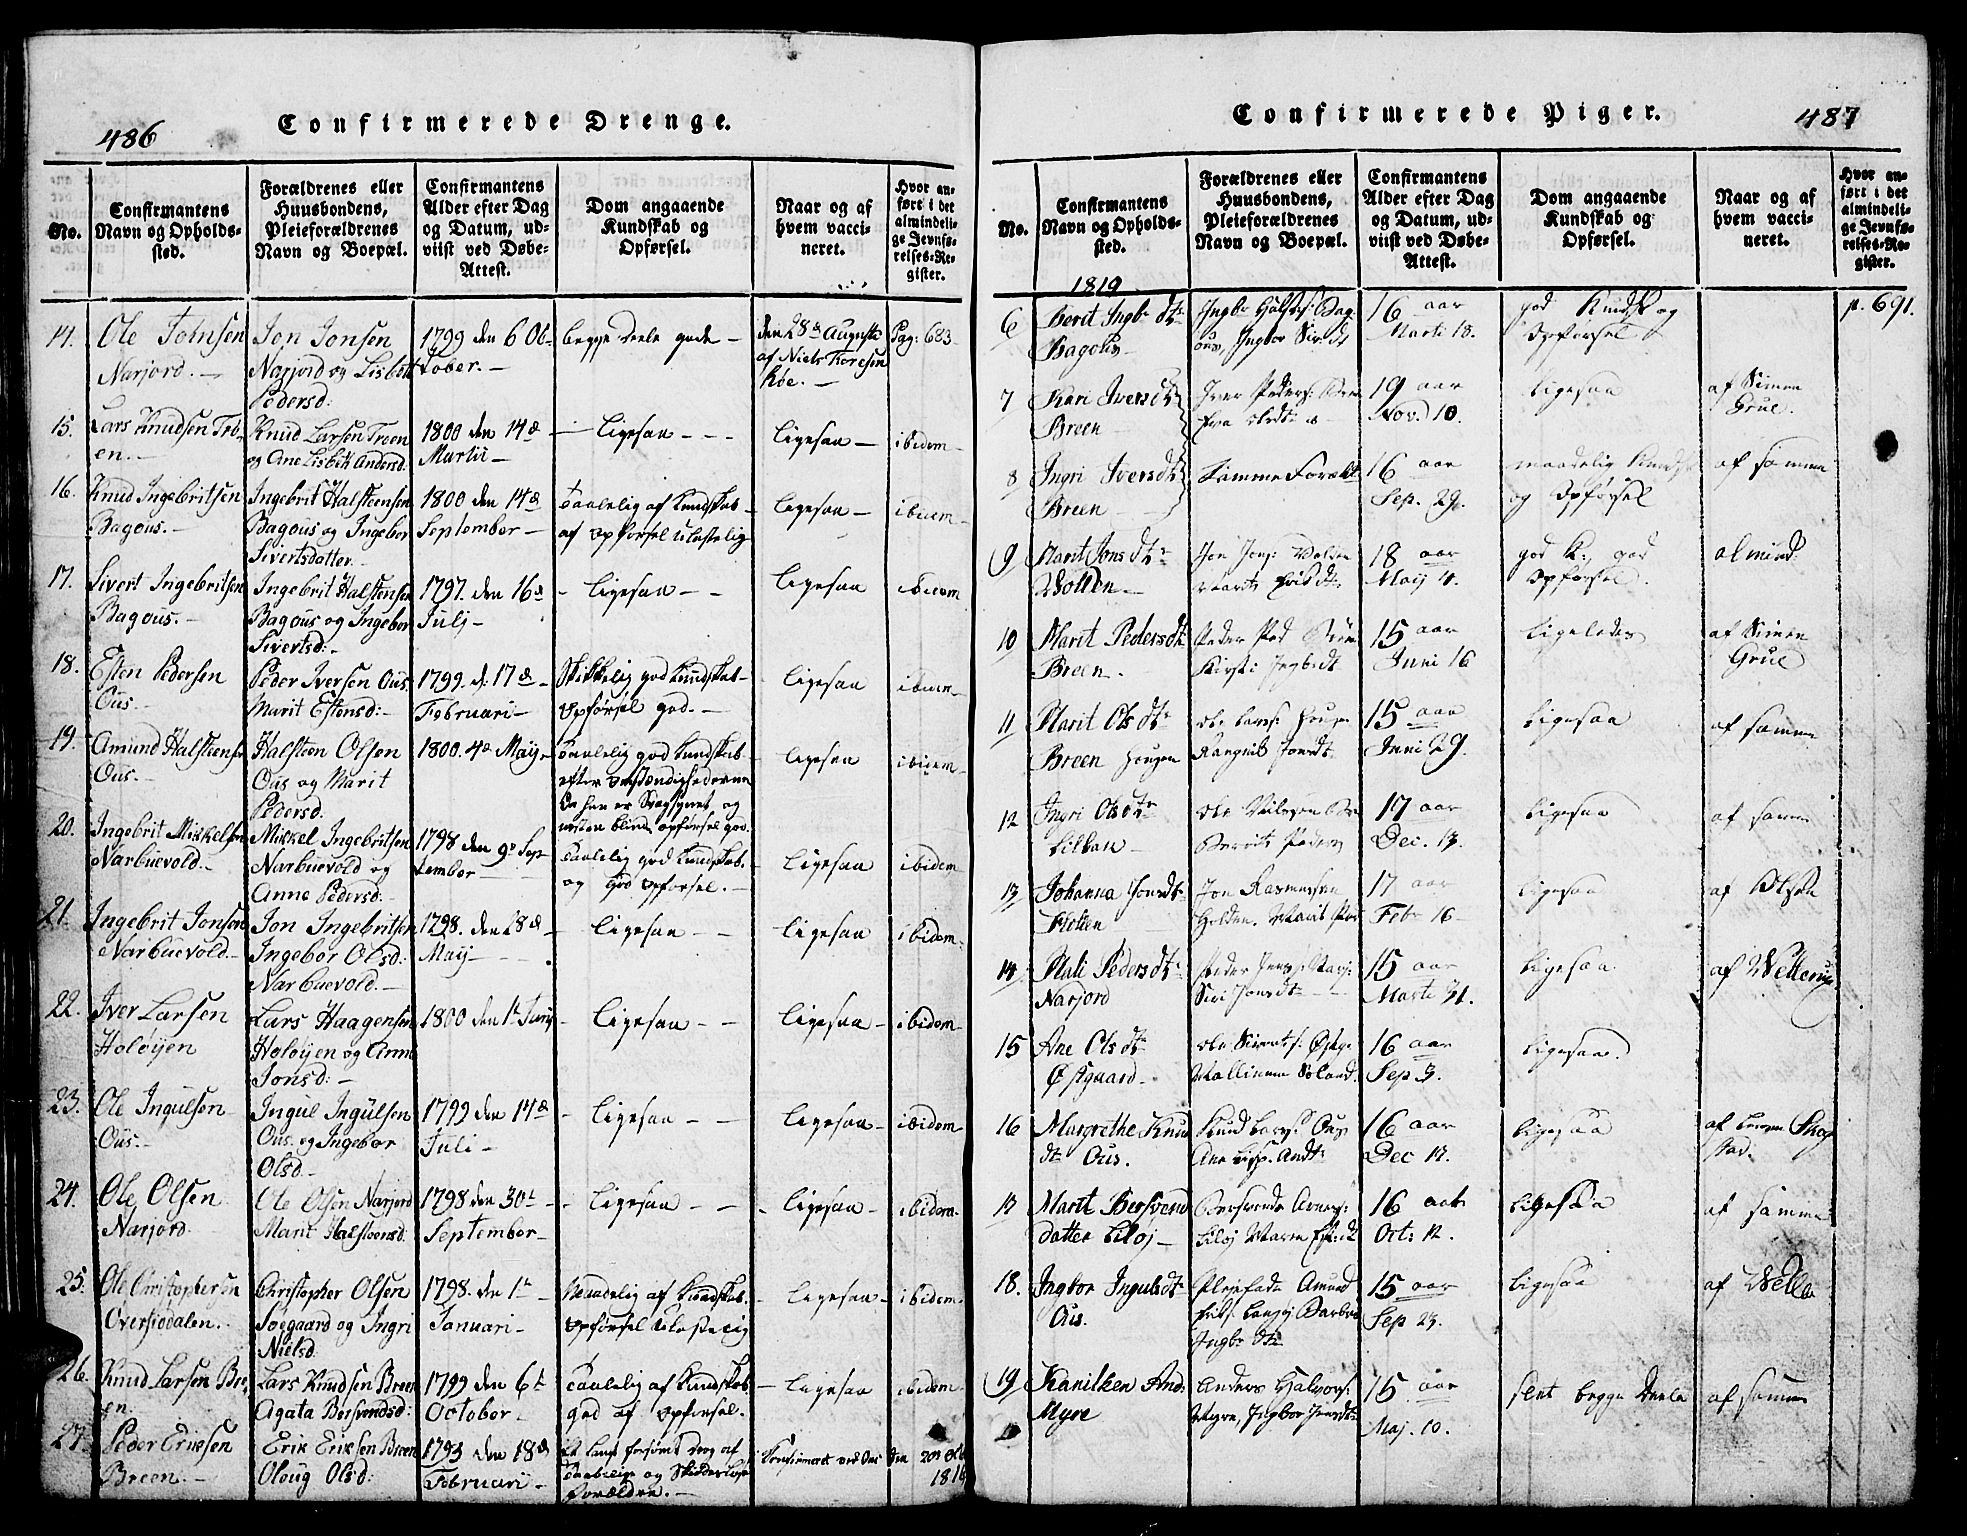 486
Confirmerede Drenge.
No.
Confirmantens
Navn og Opholds-
sted.
Forældrenes eller
Huusbondens,
Pleieforældrenes
Navn og Boepæl.
Confirmantens
Alder efter Dag
og Datum, ud-
viist ved Døbe-
Attest.
Dom angaaende
Kundskab og
Opførsel.
Naar og af
hvem vacci-
neret.
Hvor an-
ført i det
almindeli-
ge Jevnfø-
relses-Re-
gister.
14.
Ole Jonsen
Narjord.
Jon Jonsen
Narjord og Lisbeth
Pedersd:
1799 den 6 Oc-
tober.
begge deele gode
den 28d Augusti
af Niels Toresen
Røe.
Pag: 683
15.
Lars Knudsen Trø-
en.
Knud Larsen Troen
og Ane Lisbeth Andersd
1800 den 14d
Martii
Ligesaa
Ligesaa
ibidem
16.
Knud Ingebritsen
Bagous.
Ingebrit Halsteensen
Bagous og Ingebor
Sivertsdatter
1800 den 14d
September
Taalelig af Kundskab
af Opførsel ulastelig
Ligesaa
ibidem
17.
Sivert Ingebritsen
Bagous.
Ingebrit Halstensen
Bagous og Ingebor
Sivertsd:
1797. den 16d
Julj
Ligesaa
Ligesaa
ibidem
18.
Esten Pedersen
Ous.
Peder Iversen Ous.
Marit Estensd:
1799. d. 17d
Februari
Skikkelig god Kundskab
Opførsel god.
Ligesaa
ibidem
19.
Amund Halsteens
Ous.
Halsteen Olsen
Ous og Marit
Pedersd.
1800. 4d Maij
Taalelig god Kundskab
efter Omstændighederne
da han er Svagsynet og
næsten blind, opførsel god.
Ligesaa
ibidem
20.
Ingebrit Mikkelsen
Narbuevold.
Mikkel Ingebritsen
Narbuevold og
Anne Pedersd.
1798 den 9d Sep-
tember
Taalelig god Kundskab
og God Opførsel.
Ligesaa
ibidem
21.
Ingebrit Jonsen
Narbuevold.
Jon Ingebritsen
Ingebor Olsd:
Narbuevold.
1798. den 28d
Maij
Ligesaa
Ligesaa
ibidem
22.
Iver Larsen
Holøyen
Lars Haagensen
Holøyen og Anne
Jonsd:
1800 den 1t Junij
Ligesaa
Ligesaa
ibidem
23.
Ole Ingulsen
Ous.
Ingul Ingulsen
Ous. og Ingebor
Olsd
1799 den 14d
Juli
Ligesaa
Ligesaa
ibidem
24.
Ole Olsen
Narjord.
Ole Olsen Narjord
Marit Halsteensd:
1798 den 30t
September
Ligesaa
Ligesaa
ibidem
25.
Ole Christophersen
Oversiodalen.
Christopher Olsen
Soegaard og Ingri
Nielsd.
1798. den 1t
Januari
Maadelig af Kundskab.
Opførsel Ulastelig
Ligesaa
ibidem
26.
Knud Larsen Bre-
en.
Lars Knudsen Breen
Agata Bersvendsd:
1799 den 6t
October
Taalelig af Kundskab
god af Opførsel.
Ligesaa
ibidem
27.
Peder Eriksen
Breen.
Erik Eriksen Breen
Oloug Olsd:
1793 den 18d
Februari
Et langt forsømt Drog af
og
Forældre.
Confirmeret ved Ous den 20de Octb
1816
Confirmerede Piger.
487
No.
Confirmantens
Navn og Opholds-
sted.
Forældrenes eller
Huusbondens,
Pleieforældrenes
Navn og Boepæl.
Confirmantens
Alder efter Dag
og Datum, ud-
viist ved Døbe-
Attest.
Dom angaaende
Kundskab og
Opførsel.
Naar og af
hvem vacci-
neret.
Hvor an-
ført i det
almindeli-
ge Jevnfø-
relses-Re-
gister.
1819
6
Berit Ingbr dtr
Bagous
Ingbr Halst: Bag
ous, Ingbor Siv.dt
16 aar
Marti 18.
god Kundsk og
Opførsel
p. 691.
7
Kari Iversdtr
Breen
Iver Peders: Bre
19 aar
Nov. 10.
Ligesaa
af Simen
Grue.
8
Ingri Iversdtr
Breen
Samme Foræld
16 aar
Sep. 29.
maadelig Kundsk
og Opførsel
af samme
9
Marit Jons dtr
Volden
Jon Jons: Volden
18 aar
Maij 4.
god K: god
Opførsel.
almind:
10
Marit Pedersdtr
Breen.
Peder Ped Breen
Kirsti Ingb.dt
15 aar
Juni 16
Ligeledes
af Simen
Grue
11
Marit Ols dtr
Breen Hougen
Ole Lars: Hougen
Rangnild Jonsdt:
15 aar
Juni 29.
Ligesaa
af samme
12
Ingri Olsdtr
Ole
Berit Peders
17 aar
Dec. 13.
Ligesaa
af samme
13
Johanna Jonsdtr
Jon Rasmussen
Holden. Marit Ped
17 aar
Febr 16
Ligesaa
af Olsen
14
Mali Pedersdtr
Narjord
Peder Jens: Narj:
Siri Jonsdtr
15 aar
Marti 31.
Ligesaa
15
Ane Ols dtr
Østgaard
Ole Sivert s: Østg:
16 aar
Sep 3.
Ligesaa.
16
Margrethe Knud
dtr Ous.
Knud Lars: Ous
Ane Lisp. Andtr
16 aar
Dec 17.
Ligesaa
17
Marit Bersvend
datter Liløj
Liløj
16 aar
Oct: 12.
Ligesaa
af samme
18.
Ingbor Ingulsdtr
Ous.
Plejefader Amund
Ingbr dtr
15 aar
Sep 23.
Ligesaa
19
Kaniken And:
Myre
Anders Halvors:
Myre, Ingbor Jonsdtr
15 aar
Maj. 10.
slet begge Deele
af samme